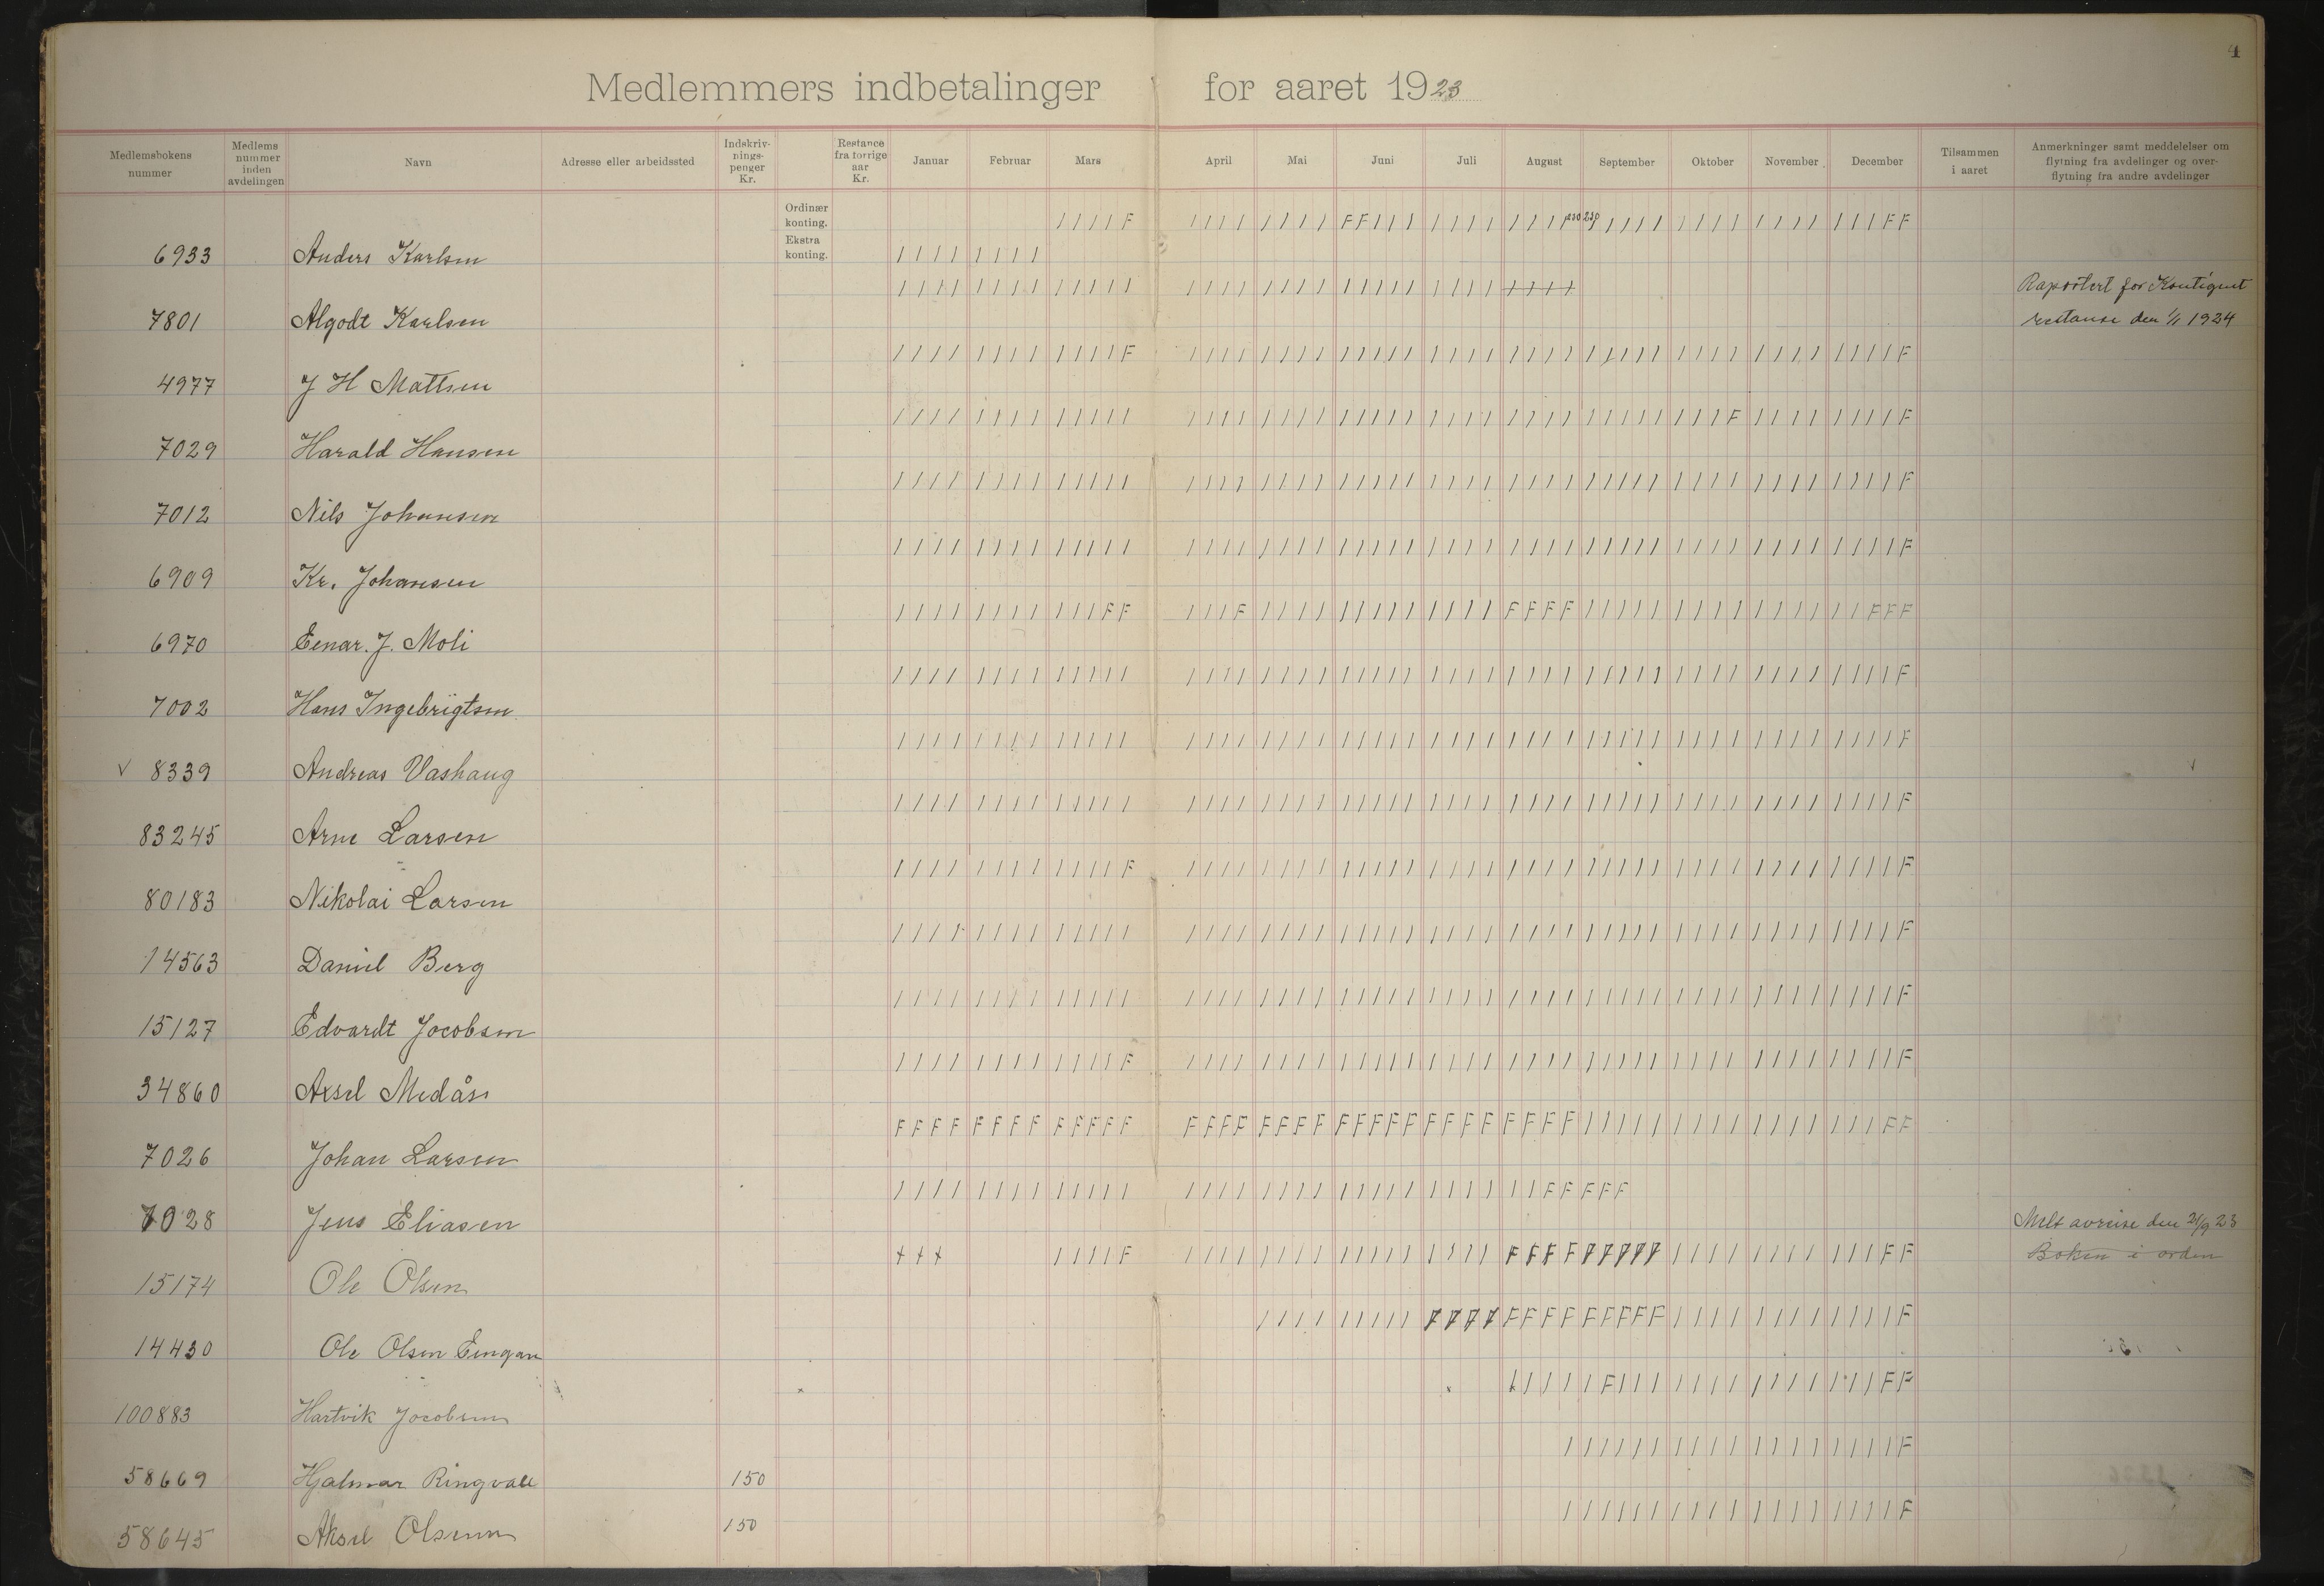 4
Medlemmers indbetalinger for aaret 1923
Medlemsbokens nummer
Medlems nummer inden avdelingen
Navn
Adresse eller arbeidssted
Indskrivnings-penger Kr.
Restance fra forrige aar Kr.
Januar Februar Mars April Mai Juni Juli August September Oktober November December
Tilsammen i aaret
Anmerkninger samt meddelelser om flytning fra avdelinger og overflytning fra andre avdelinger
Ordinær konting. / / / / F / / / / / / / / F F / / / / / / / / / / / / / / / / / / / / / / / / / / F F
6933 Anders Karlsen Ekstra konting. / / / / / / / /
/ / / / / / / / / / / / / / / / / / / / / / / / / / / / / / + + + + Raportert for Kontigent
7801 Algodt Karlsen restanse den 1/1 1924
/ / / / / / / / / / / / F / / / / / / / / / / / / / / / / / / / / / / / / / / / / / / / / / / / / / / / F
4977 J H Mattsen
/ / / / / / / / / / / / / / / / / / / / / / / / / / / / / / / / / / / / / / / / / / F / / / / / / / / F
7029 Harald Hansen
/ / / / / / / / / / / / / / / / / / / / / / / / / / / / / / / / / / / / / / / / / / / / / / / / / / / F
7012 Nils Johansen
/ / / / / / / / / / / / / / / / / / / / / / / / / / / / / / / / / / / / / / / / / / / / / / / / / / / F
6909 Kr. Johansen
/ / / / / / / / / / / F F / / / F / / / / / / / / / / / / / F F F F / / / / / / / / / / / / / / / F F F
6970 Einar. J. Moli
/ / / / / / / / / / / / / / / / / / / / / / / / / / / / / / / / / / / / / / / / / / / / / / / / / / / F
7002 Hans Ingebrigtsen
/ / / / / / / / / / / / / / / / / / / / / / / / / / / / / / / / / / / / / / / / / / / / / / / / / / / F
√ 8339 Andreas Vashaug
/ / / / / / / / / / / / / / / / / / / / / / / / / / / / / / / / / / / / / / / / / / / / / / / / / / / F
83245 Arne Larsen
/ / / / / / / / / / / / F / / / / / / / / / / / / / / / / / / / / / / / / / / / / / / / / / / / / / / / F
80183 Nikolai Larsen
/ / / / / / / / / / / / / / / / / / / / / / / / / / / / / / / / / / / / / / / / / / / / / / / / / / / F
14563 Daniel Berg
/ / / / / / / / / / / / / / / / / / / / / / / / / / / / / / / / / / / / / / / / / / / / / / / / / / / F
15127 Edvardt Jocobsen
/ / / / / / / / / / / / F / / / / / / / / / / / / / / / / / / / / / / / / / / / / / / / / / / / / / / / F
34860 Axsel Medåss
F F F F F F F F F F F F F F F F F F F F F F F F F F F F F F F F F F F / / / / / / / / / / / / / / / / F F
7026 Johan Larsen
/ / / / / / / / / / / / / / / / / / / / / / / / / / / / / / / / F F F F F
7028 Jens Eliasen Melt avreise den 21/9 23
+ + + / / / / F / / / / / / / / / / / / / / / / / F F F F F F F F F / / / / / / / / / / / F F Boken i orden
15174 Ole Olsen
/ / / / / / / / / F F F F F F F F F F F F F / / / / / / / / / / / / F
14430 Ole Olsen Eengan
/ / / / / F / / / / / / / / / / / / / / F F
100883 Hartvik Jocobsen
/ / / / / / / / / / / / / / / / / / F
58669 Hjalmar Ringvall 150
/ / / / / / / / / / / / / / / / / / F
58645 Aksel Olsenn 150